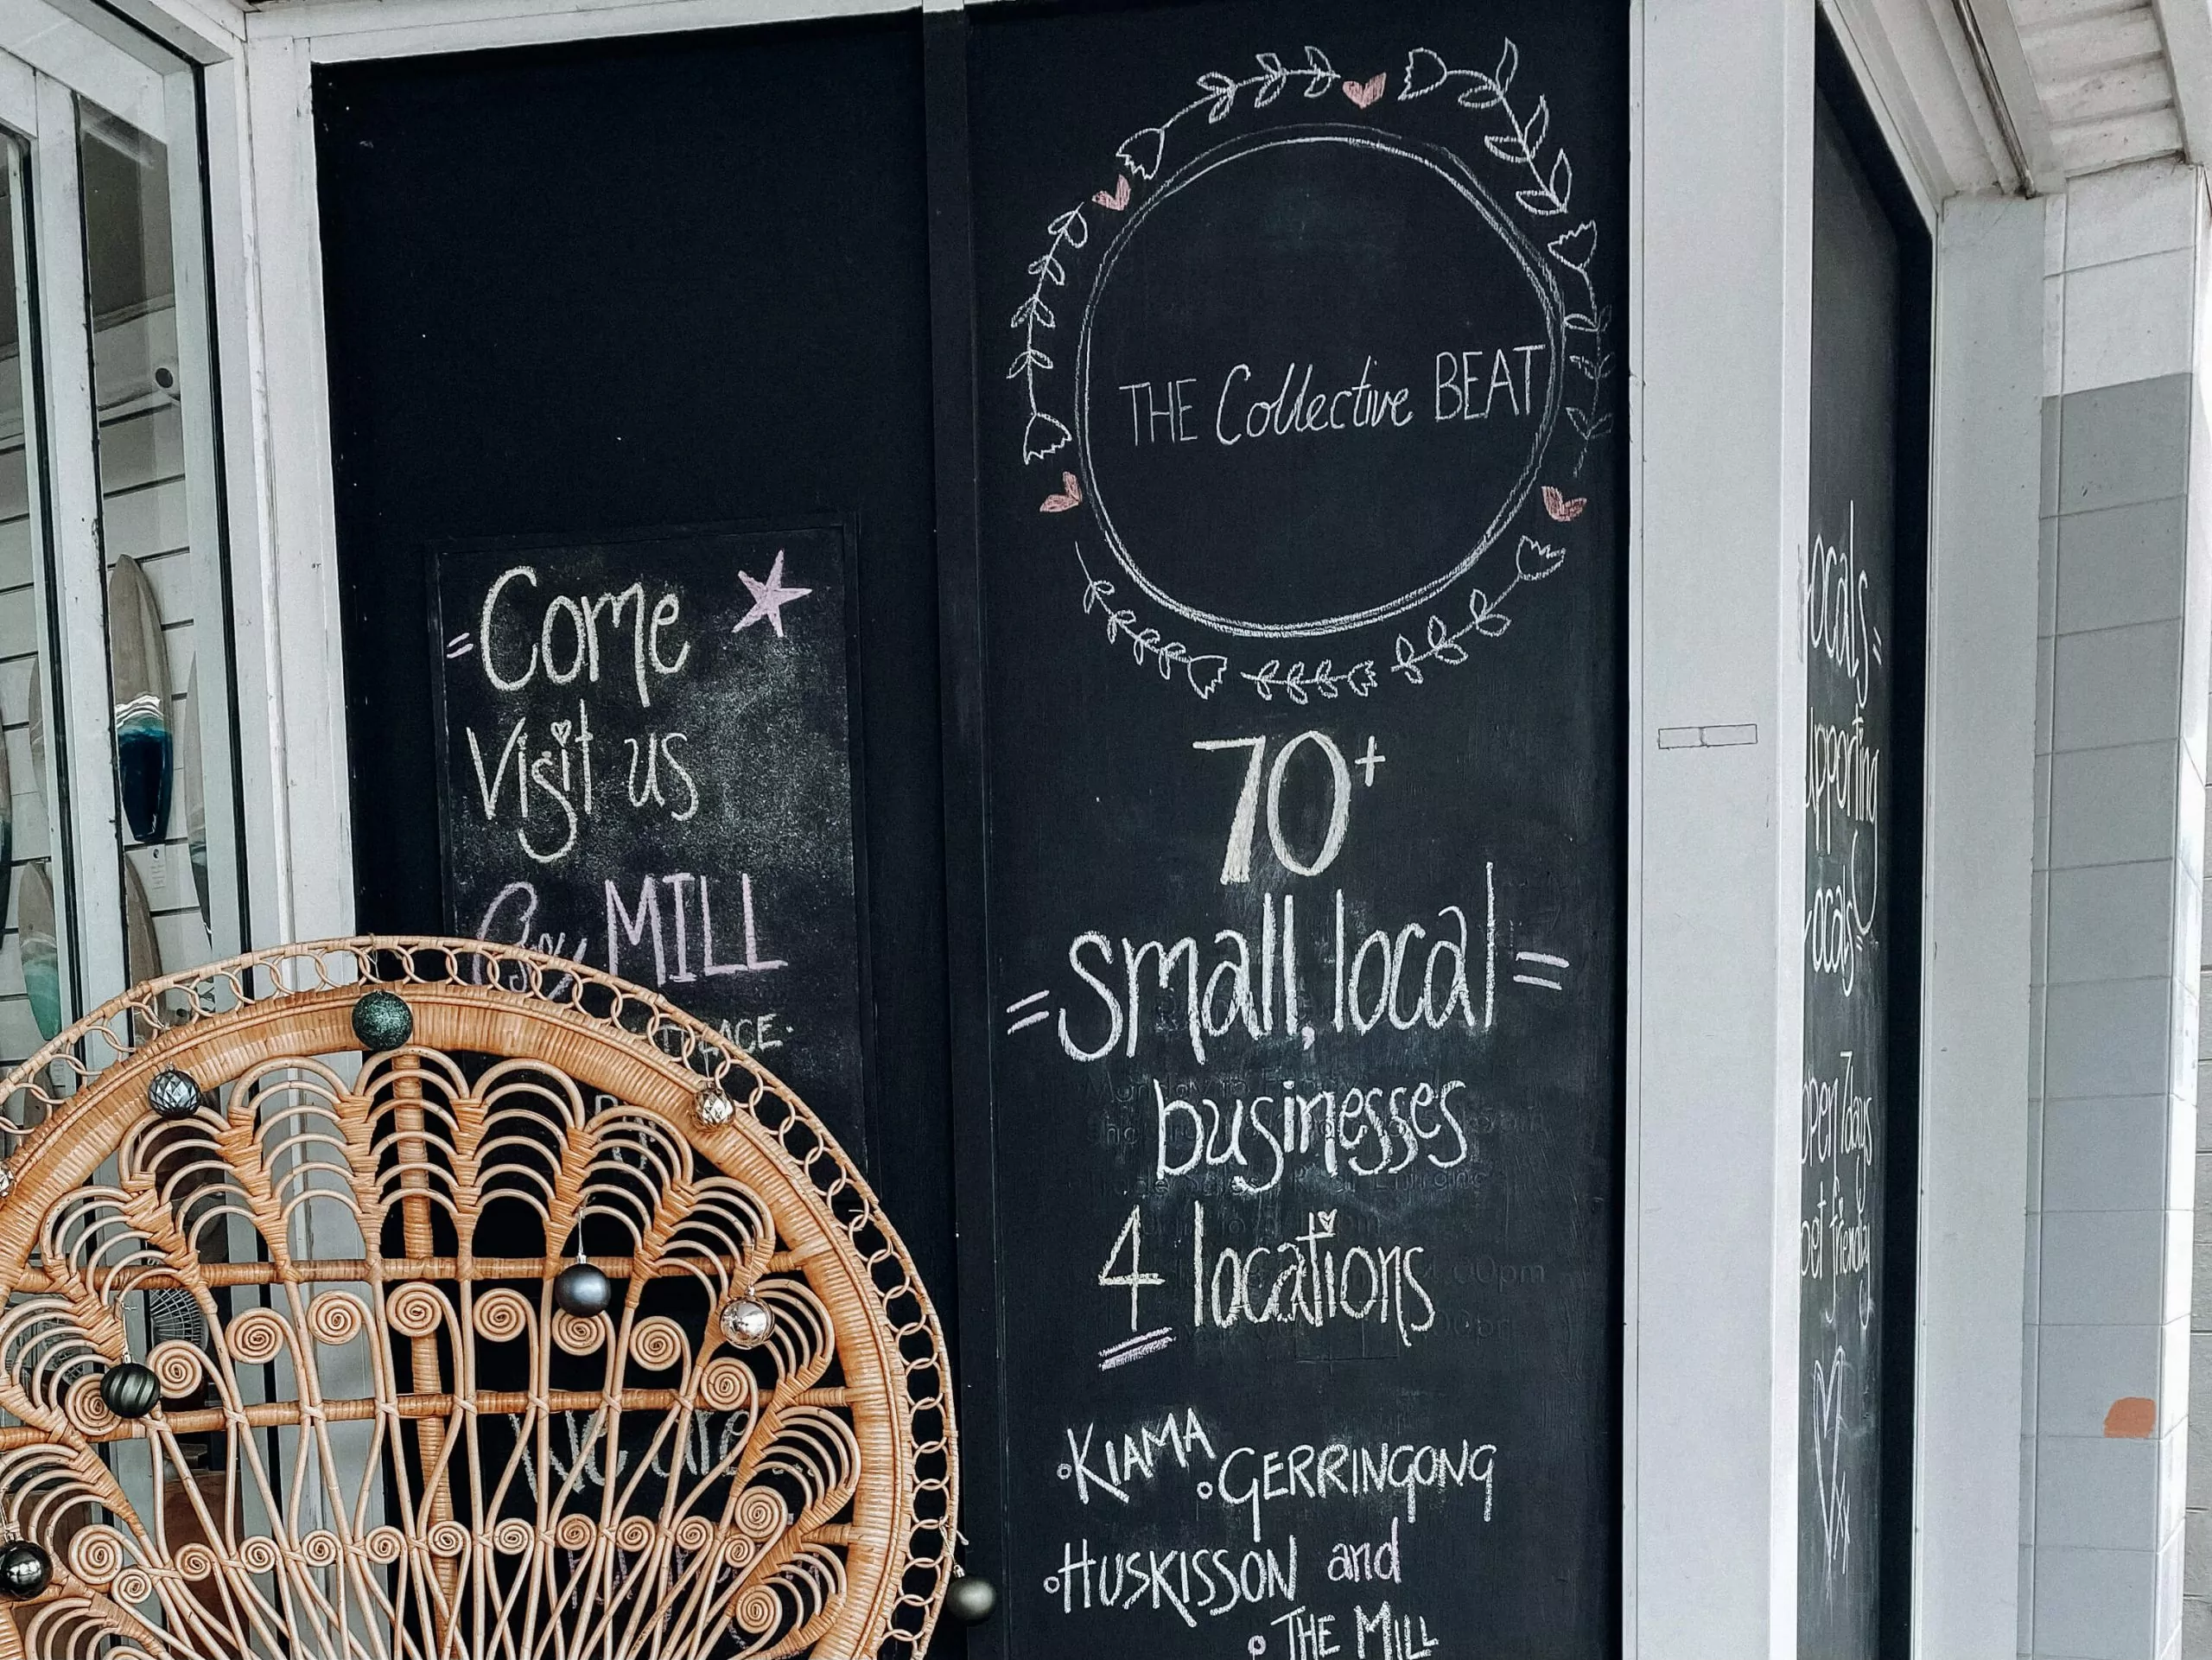 Come
Visit us
MILL
We are
THE Collective BEAT
70+
small, local
businesses
4 locations
KIAMA
GERRINGONG
HUSKISSON and
THE MILL
ocals
upporting
locals
open 7 days
friendly
xx